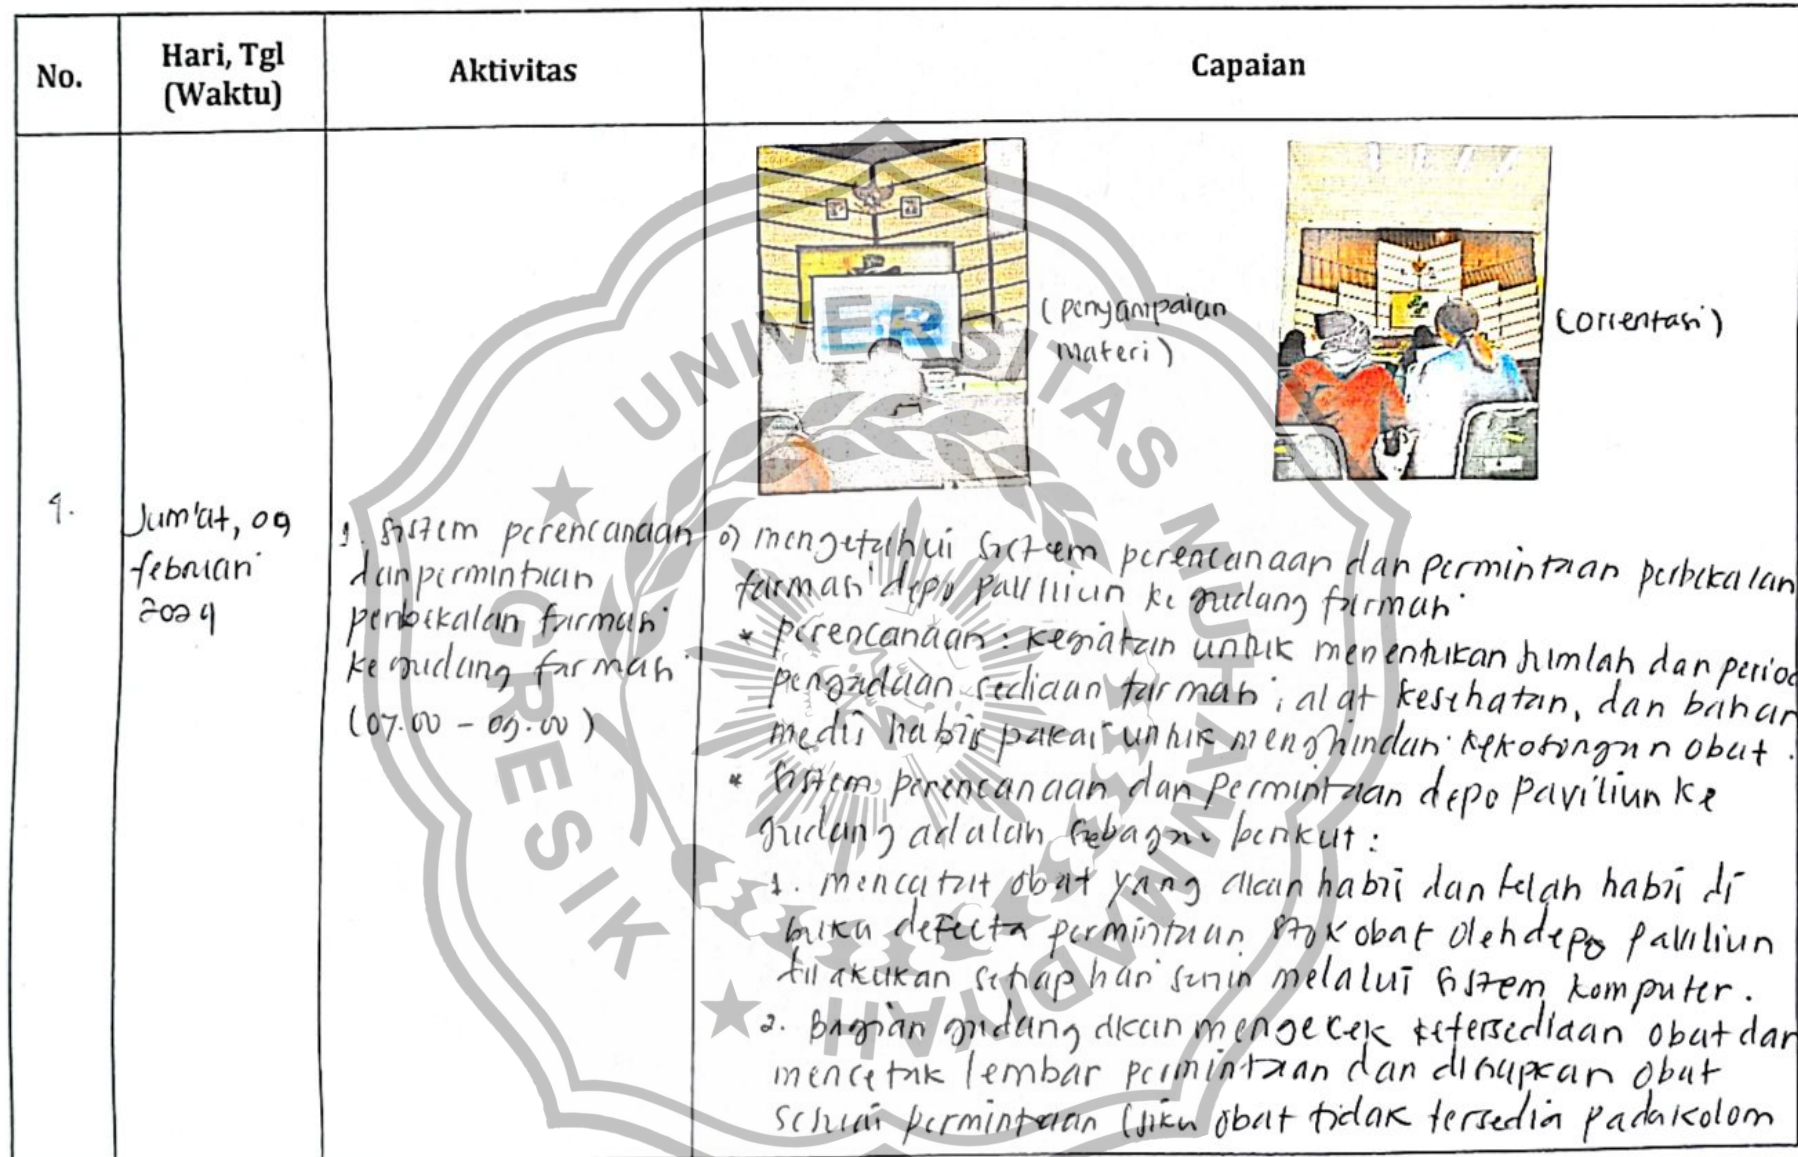 No.
Hari, Tgl
(Waktu)
Aktivitas
Capaian
(penyampaian
materi)
(orientasi)
4.
Jum'at, 09
februari
2024
1. sistem perencanaan
dan permintaan
perbekalan farmasi
ke gudang farmasi
(07.00 - 09.00)
o) mengetahui sistem perencanaan dan permintaan perbekalan
farmasi depo paviliun ke gudang farmasi
* perencanaan : kegiatan untuk menentukan jumlah dan period
pengadaan sediaan farmasi, alat kesehatan, dan bahan
medis habis pakai untuk menghindari kekosongan obat.
* sistem perencanaan dan permintaan depo paviliun ke
gudang adalah sebagai berikut :
1. mencatat obat yang akan habis dan telah habis di
buku defecta permintaan stok obat oleh depo paviliun
dilakukan setiap hari senin melalui sistem komputer.
2. Bagian gudang akan mengecek ketersediaan obat dan
mencetak lembar permintaan dan disiapkan obat
sesuai permintaan (jika obat tidak tersedia pada kolom
UNIVERSITAS MUHAMMADIYAH
GRESIK